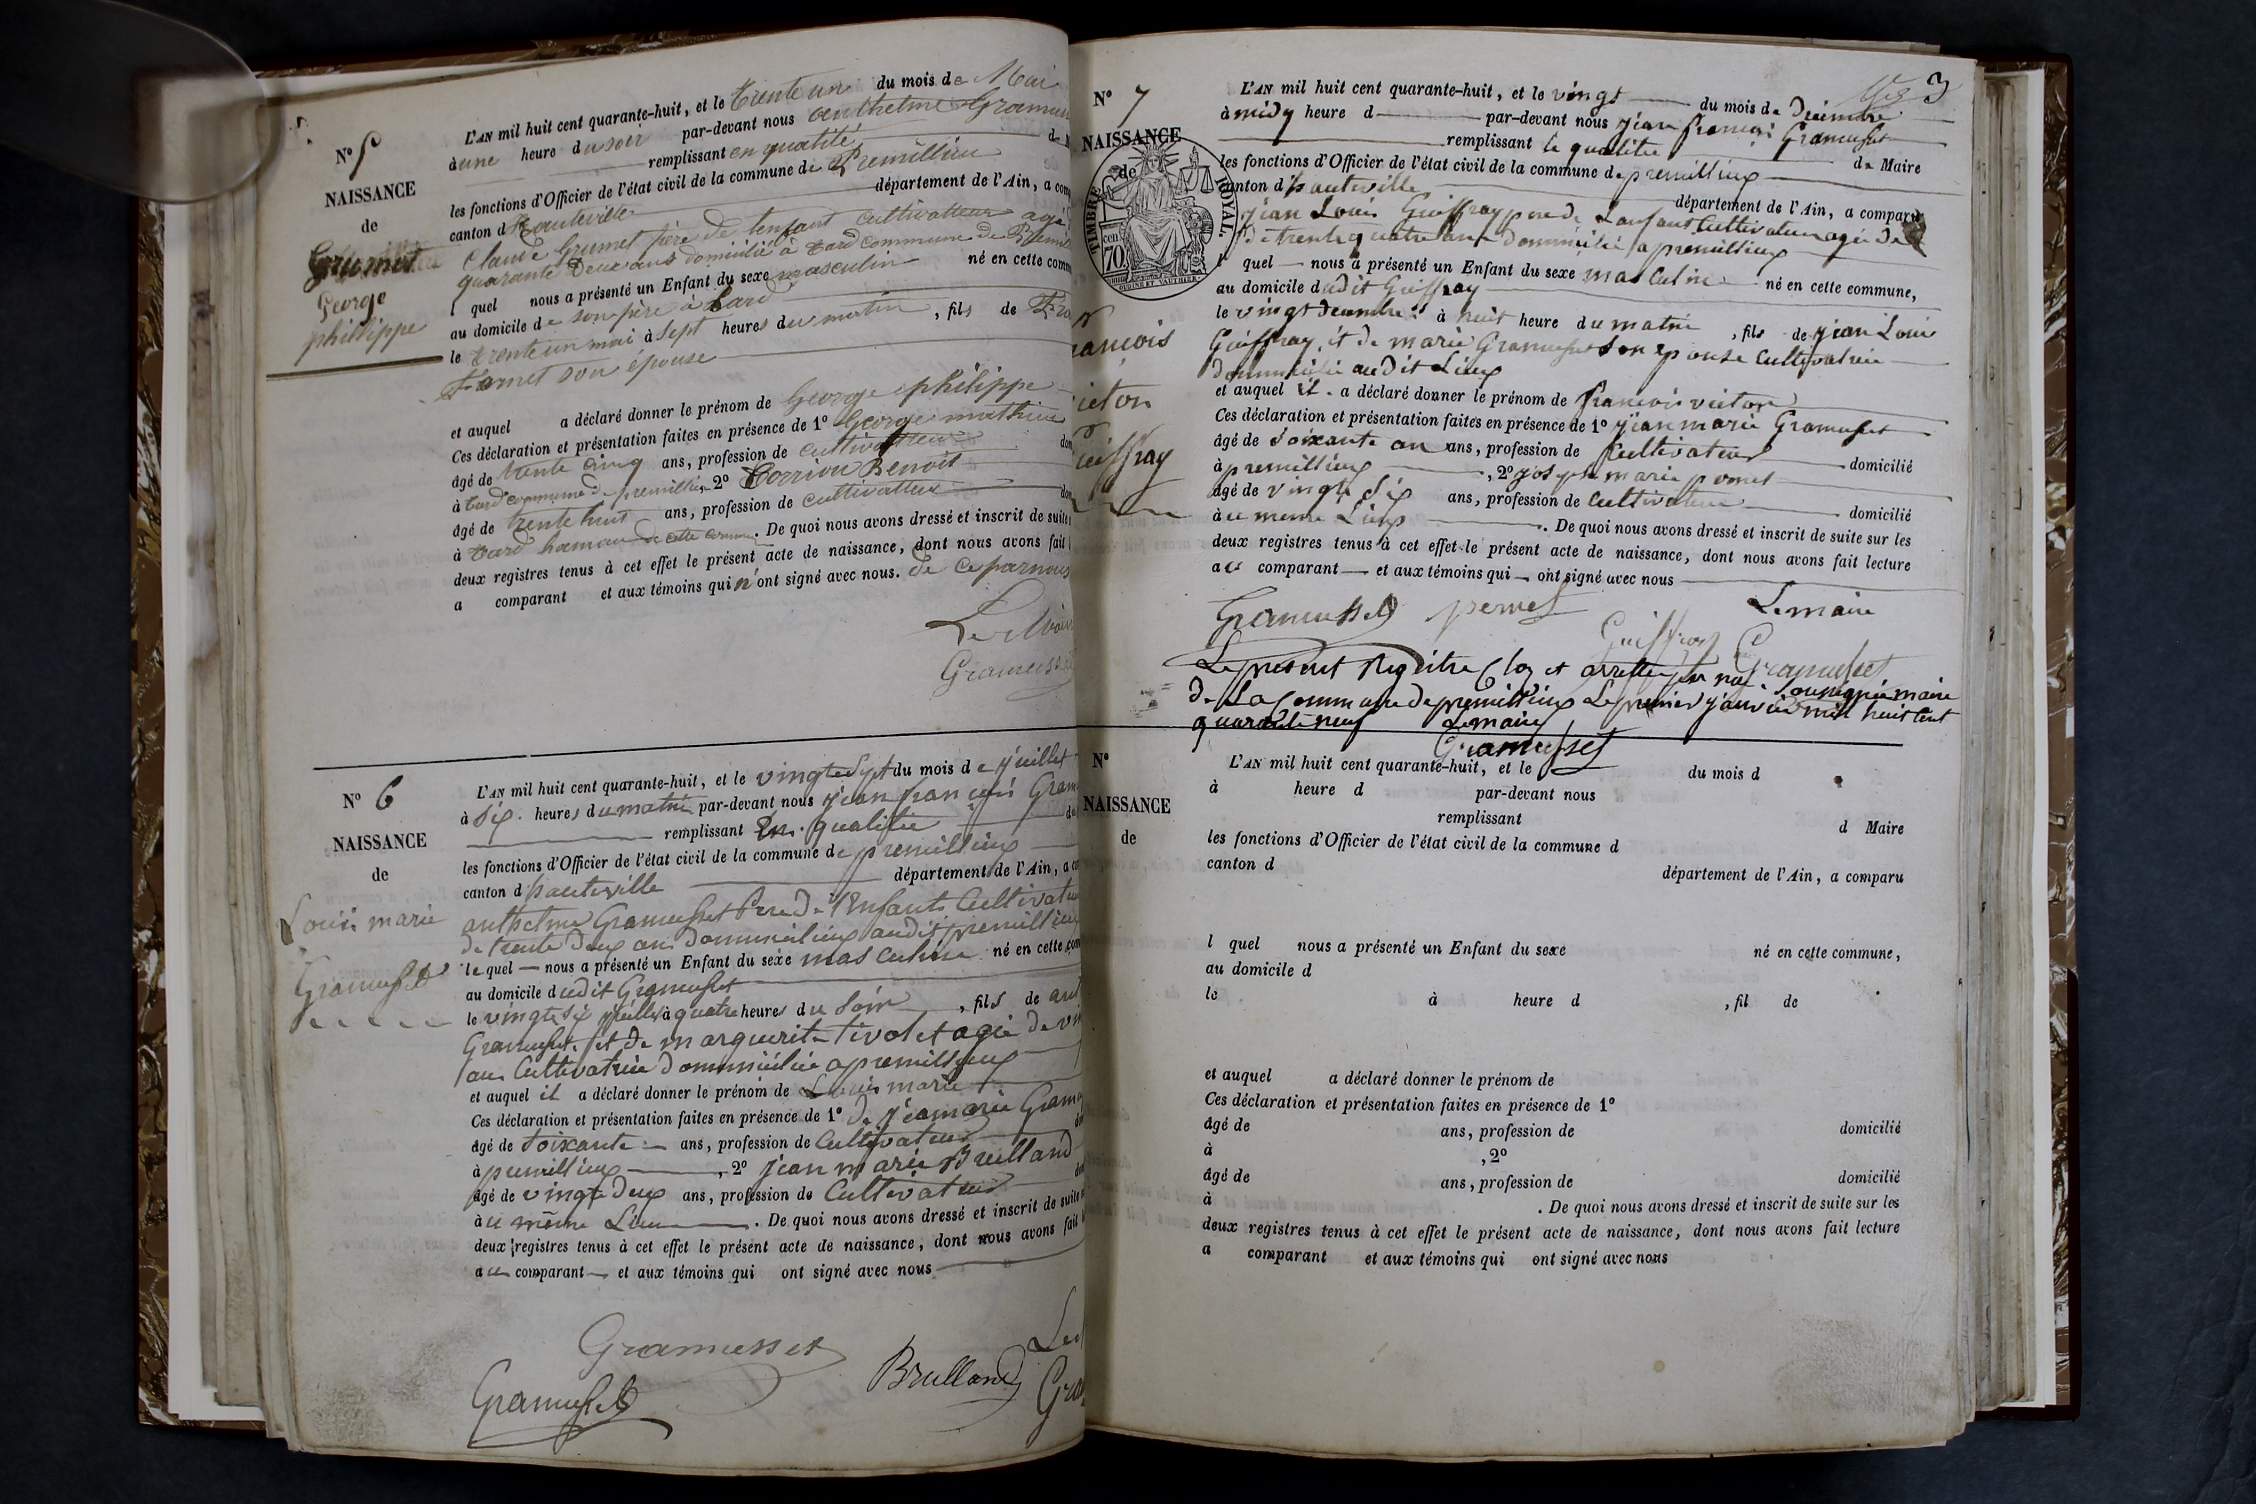 N° 5
NAISSANCE
de
Grumet
George
philippe
L'AN mil huit cent quarante-huit, et le trente un du mois de Mai
à une heure du soir par-devant nous anthelme Gramu
remplissant en qualité d
les fonctions d'Officier de l'état civil de la commune de Premillieu
canton d'hauteville département de l'Ain, a com
Claude Grumet père de lenfant cultivatteur agé
quarante deux ans domicilié à tard commune de Premil
l quel nous a présenté un Enfant du sexe masculin né en cette comm
au domicile de son père à tard
le trente un mai à sept heures du matin, fils de
son épouse
et auquel a déclaré donner le prénom de George philippe
Ces déclaration et présentation faites en présence de 1° George mathieu
âgé de trente cinq ans, profession de cultivatteur dom
à tard commune de premillieu, 2° Benoit
âgé de trente huit ans, profession de cultivatteur dom
à tard hameau de cette commune. De quoi nous avons dressé et inscrit de suite
deux registres tenus à cet effet le présent acte de naissance, dont nous avons fait l
a comparant et aux témoins qui n'ont signé avec nous. de ce par nous
Le Maire
Gramuss
N° 6
NAISSANCE
de
Louis marie
Gramusset
L'AN mil huit cent quarante-huit, et le vingt Sept du mois de juillet
à Six heures du matin par-devant nous jean françois Gram
remplissant En qualitée de
les fonctions d'Officier de l'état civil de la commune de premillieux
canton d'hauteville département de l'Ain, a co
anthelme Gramusset Pere de l'Enfant Cultivateu
de trente deux ans domicilieux audit premillieux
le quel nous a présenté un Enfant du sexe masculin né en cette com
au domicile dudit Gramusset
le vingt Six juillet à quatre heures du Soir, fils de ant
Gramusset et de marguerite tivolet agée de vin
ans Cultivatrice domiciliée a premillieux
et auquel il a déclaré donner le prénom de Louis marie
Ces déclaration et présentation faites en présence de 1° de jeanmarie Gramu
âgé de Soixante ans, profession de Cultivateur dom
à premillieux, 2° jean marie Brulland
âgé de vingt deux ans, profession de Cultivateur dom
à u même Lieux. De quoi nous avons dressé et inscrit de suite s
deux registres tenus à cet effet le présent acte de naissance, dont nous avons fait l
au comparant et aux témoins qui ont signé avec nous
Gramusset
Gramusset
Brulland
Le
Gra
3
N° 7
NAISSANCE
de
TIMBRE ROYAL.
70
françois
victor
Guiffray
L'AN mil huit cent quarante-huit, et le vingt du mois de Décembre
à midy heure d par-devant nous jean françois Gramusset
remplissant la qualitée de Maire
les fonctions d'Officier de l'état civil de la commune de premillieux
canton d'hauteville département de l'Ain, a comparu
jean Louis Guiffray pere de Lanfant Cultivateur agée de
de trente quatre ans domicilié a premillieux
l quel nous a présenté un Enfant du sexe masculine né en cette commune,
au domicile dudit Guiffray
le vingt decembre à huit heure du matin, fils de jean Louis
Guiffray et de marie Gramusset Son epouse Cultivatrice
domiciliée audit Lieux
et auquel il a déclaré donner le prénom de françois victor
Ces déclaration et présentation faites en présence de 1° jean marie Gramusset
âgé de Soixante an ans, profession de Cultivateur domicilié
à premillieux, 2° joseph marie pernet
âgé de vingt Six ans, profession de Cultivateur domicilié
à u meme Lieux. De quoi nous avons dressé et inscrit de suite sur les
deux registres tenus à cet effet le présent acte de naissance, dont nous avons fait lecture
au comparant et aux témoins qui ont signé avec nous
Gramusset pernet Le maire
Guiffray Gramusset
Le present Registre Cloz et arretter par nous Sousignée maire
de La Commune de premillieux Le premier janvier mil huit Cent
quarante neuf Le maire
Gramusset
N°
NAISSANCE
de
L'AN mil huit cent quarante-huit, et le du mois d
à heure d par-devant nous
remplissant d Maire
les fonctions d'Officier de l'état civil de la commune d
canton d département de l'Ain, a comparu
l quel nous a présenté un Enfant du sexe né en cette commune,
au domicile d
le à heure d , fil de
et auquel a déclaré donner le prénom de
Ces déclaration et présentation faites en présence de 1°
âgé de ans, profession de domicilié
à , 2°
âgé de ans, profession de domicilié
à . De quoi nous avons dressé et inscrit de suite sur les
deux registres tenus à cet effet le présent acte de naissance, dont nous avons fait lecture
a comparant et aux témoins qui ont signé avec nous